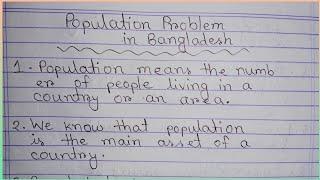 Population Problem
in Bangladesh
1. Population means the numb
er of people living in a
country or an area.
2. We know that population
is the main asset of a
country.